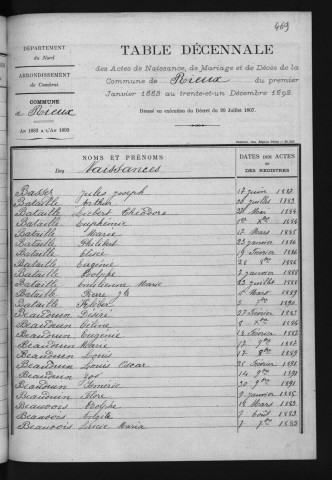 469
DÉPARTEMENT
du Nord
ARRONDISSEMENT
de Cambrai
COMMUNE
de Rieux
An 1883 à l'An 1892
TABLE DÉCENNALE
des Actes de Naissance, de Mariage et de Décès de la
Commune de Rieux du premier
Janvier 1883 au trente-et-un Décembre 1892
Dressé en exécution du Décret du 20 Juillet 1807.
NOMS ET PRÉNOMS
DATES DES ACTES
ET DES REGISTRES
Des Naissances
Basser Jules Joseph 17 Juin 1887
Bataille Arthur 26 Juillet 1883
Bataille Hubert Théodore 28 Mai 1884
Bataille Euphémie 1884
Bataille Marie 17 Mars 1885
Bataille Philibert 23 Janvier 1886
Bataille Elisée 19 Février 1886
Bataille Eugénie 28 1886
Bataille Adolphe 7 Janvier 1888
Bataille Emilienne Marie 23 Juillet 1888
Bataille Pierre Mars 1889
Bataille 1890
Beauduin Désiré 27 Février 1883
Beauduin Céline 8 1884
Beauduin Eugénie 14 Février 1887
Beauduin Marie 17 1887
Beauduin Louis 17 1889
Beauduin Louis Oscar 26 Février 1891
Beauduin Zoé 14 1891
Beauduin 30 1891
Beauduin Flore 9 Janvier 1885
Beauvois Adolphe 16 Mars 1883
Beauvois 7 Août 1883
Beauvois Lucie Maria 7 1883